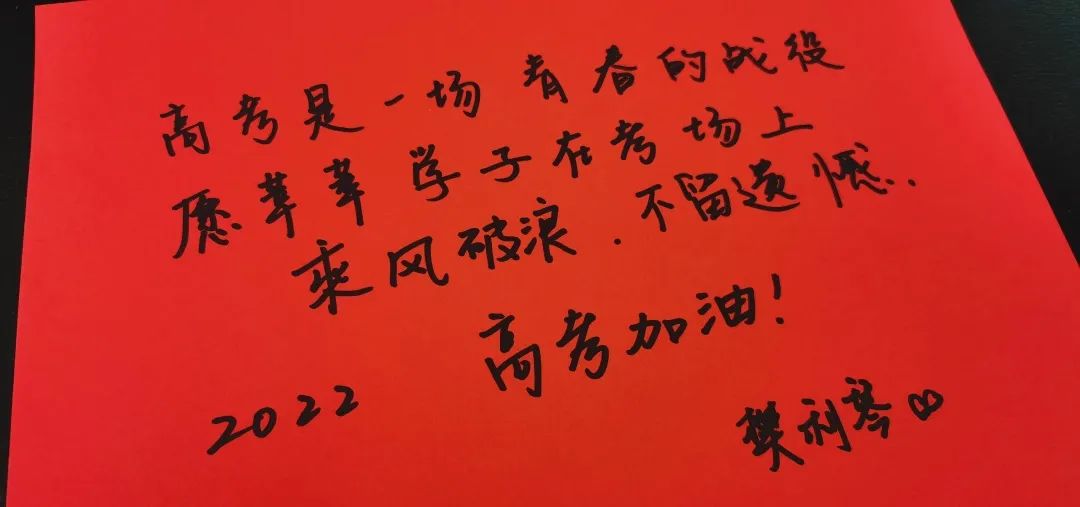 高考是一场青春的战役
愿莘莘学子在考场上
乘风破浪.不留遗憾.
高考加油!
2022
樊利琴